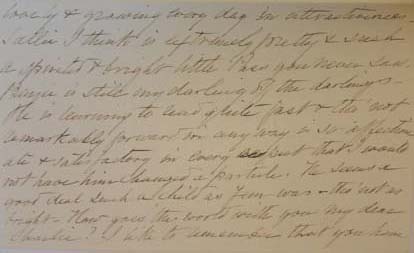 lovely & growing every day in attractiveness
Sallie I think is extremely pretty & such
a spirited & bright little Puss you never saw.
is still my darling of the darlings -
He is learning to read quite fast & tho' not
remarkably forward in any way is so affection
ate & satisfactory in every but that I would
not have him changed a particle. He seems a
good deal such a child as Jim was - tho' not as
bright - How goes the world with you my dear
Charlie? I like to remember that you have